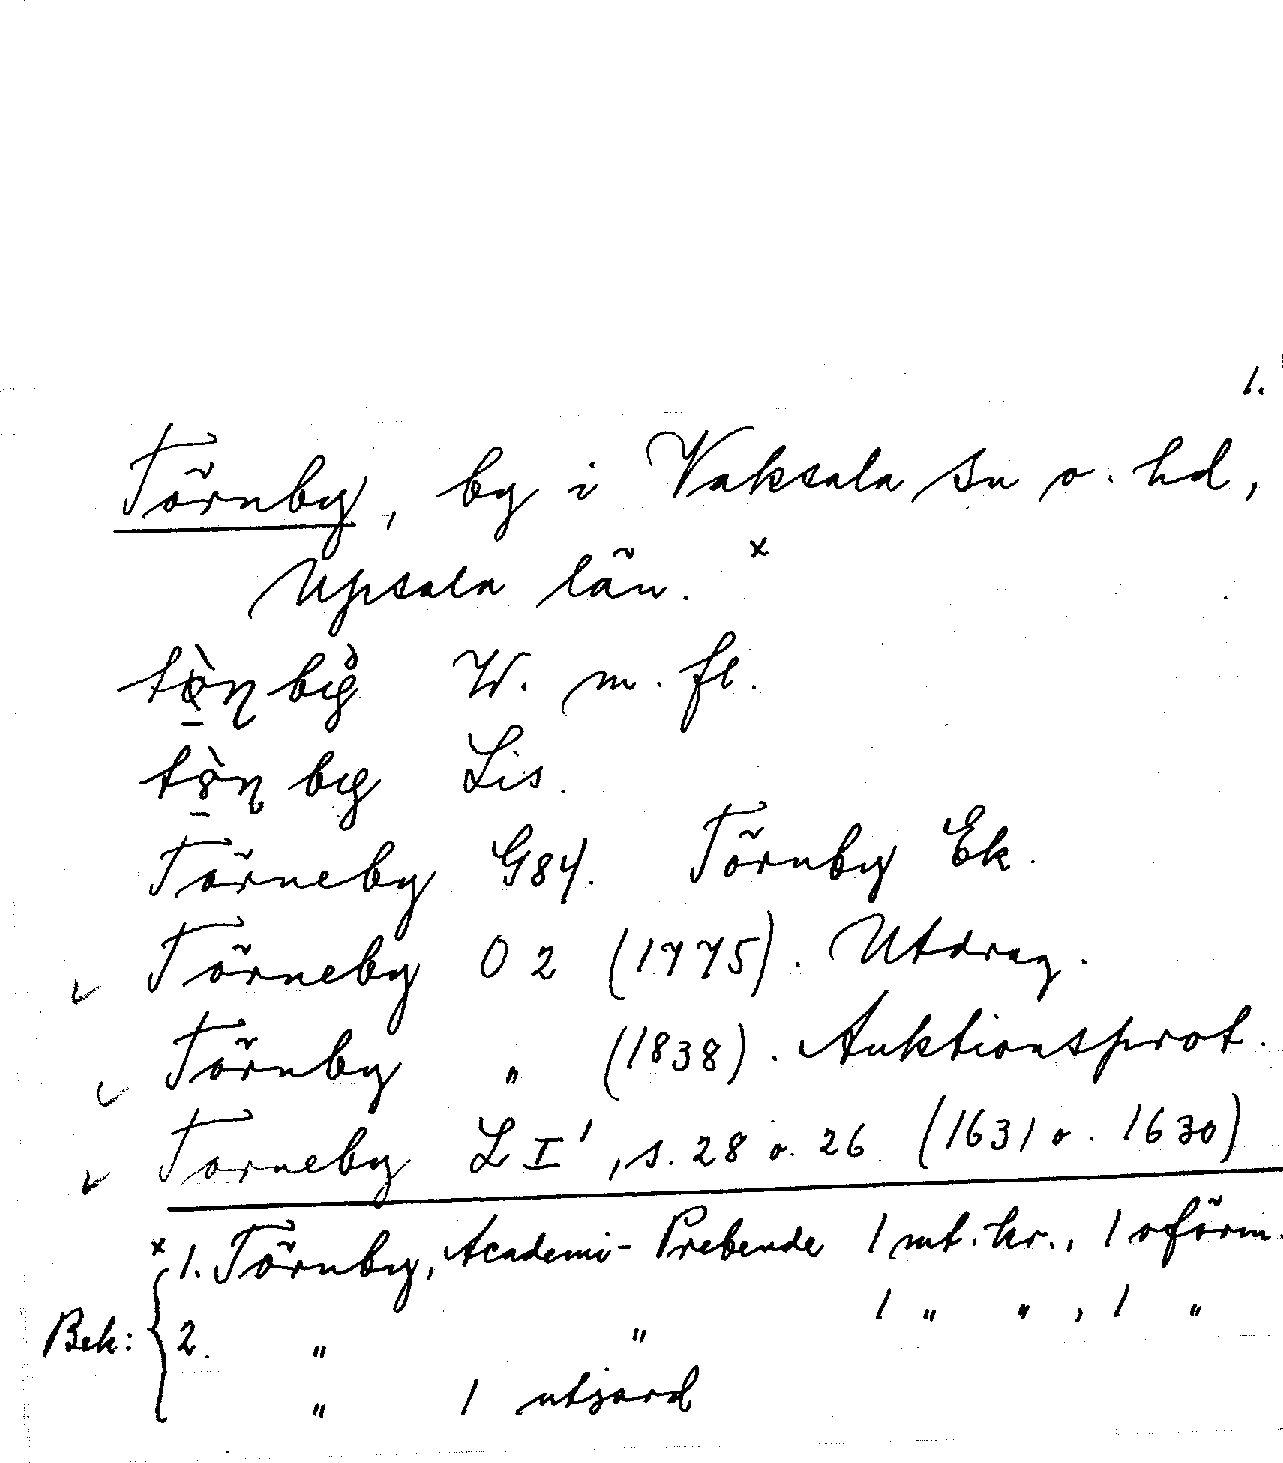 1.
Törnby, by i Vaksala sn o. hd,
Upsala län. x
W. m. fl.
Lis.
Törneby G84. Törnby Ek.
✓ Törneby O 2 (1775). Utdrag.
✓ Törnby " (1838). Auktionsprot.
✓ Torneby L I¹, s. 28 o. 26 (1631 o. 1630)
x 1. Törnby, Academi-Prebende 1 mt. kr., 1 oförm.
Bek: { 2. " " 1 " " , 1 "
" 1 utjord